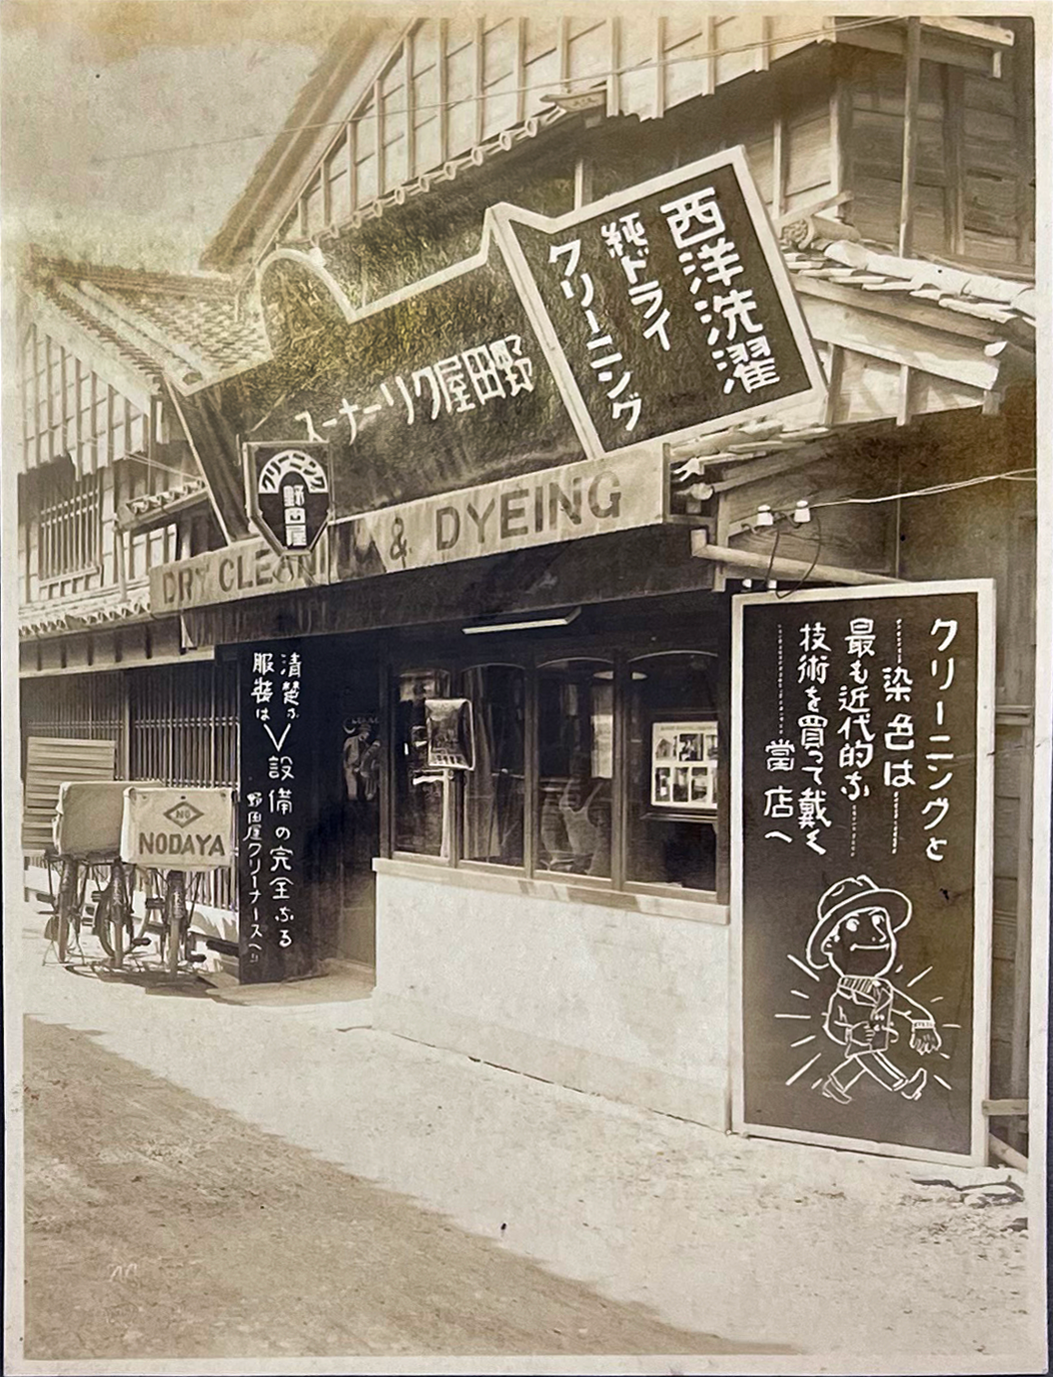 西洋洗濯
純ドライ
クリーニング
野田屋クリーナース
クリーニング
野田屋
DRY CLEANING & DYEING
クリーニングと
染色は
最も近代的な
技術を買って戴く
當店へ
清楚な
服装は
設備の完全なる
野田屋クリーナースへ!!
NO
NODAYA